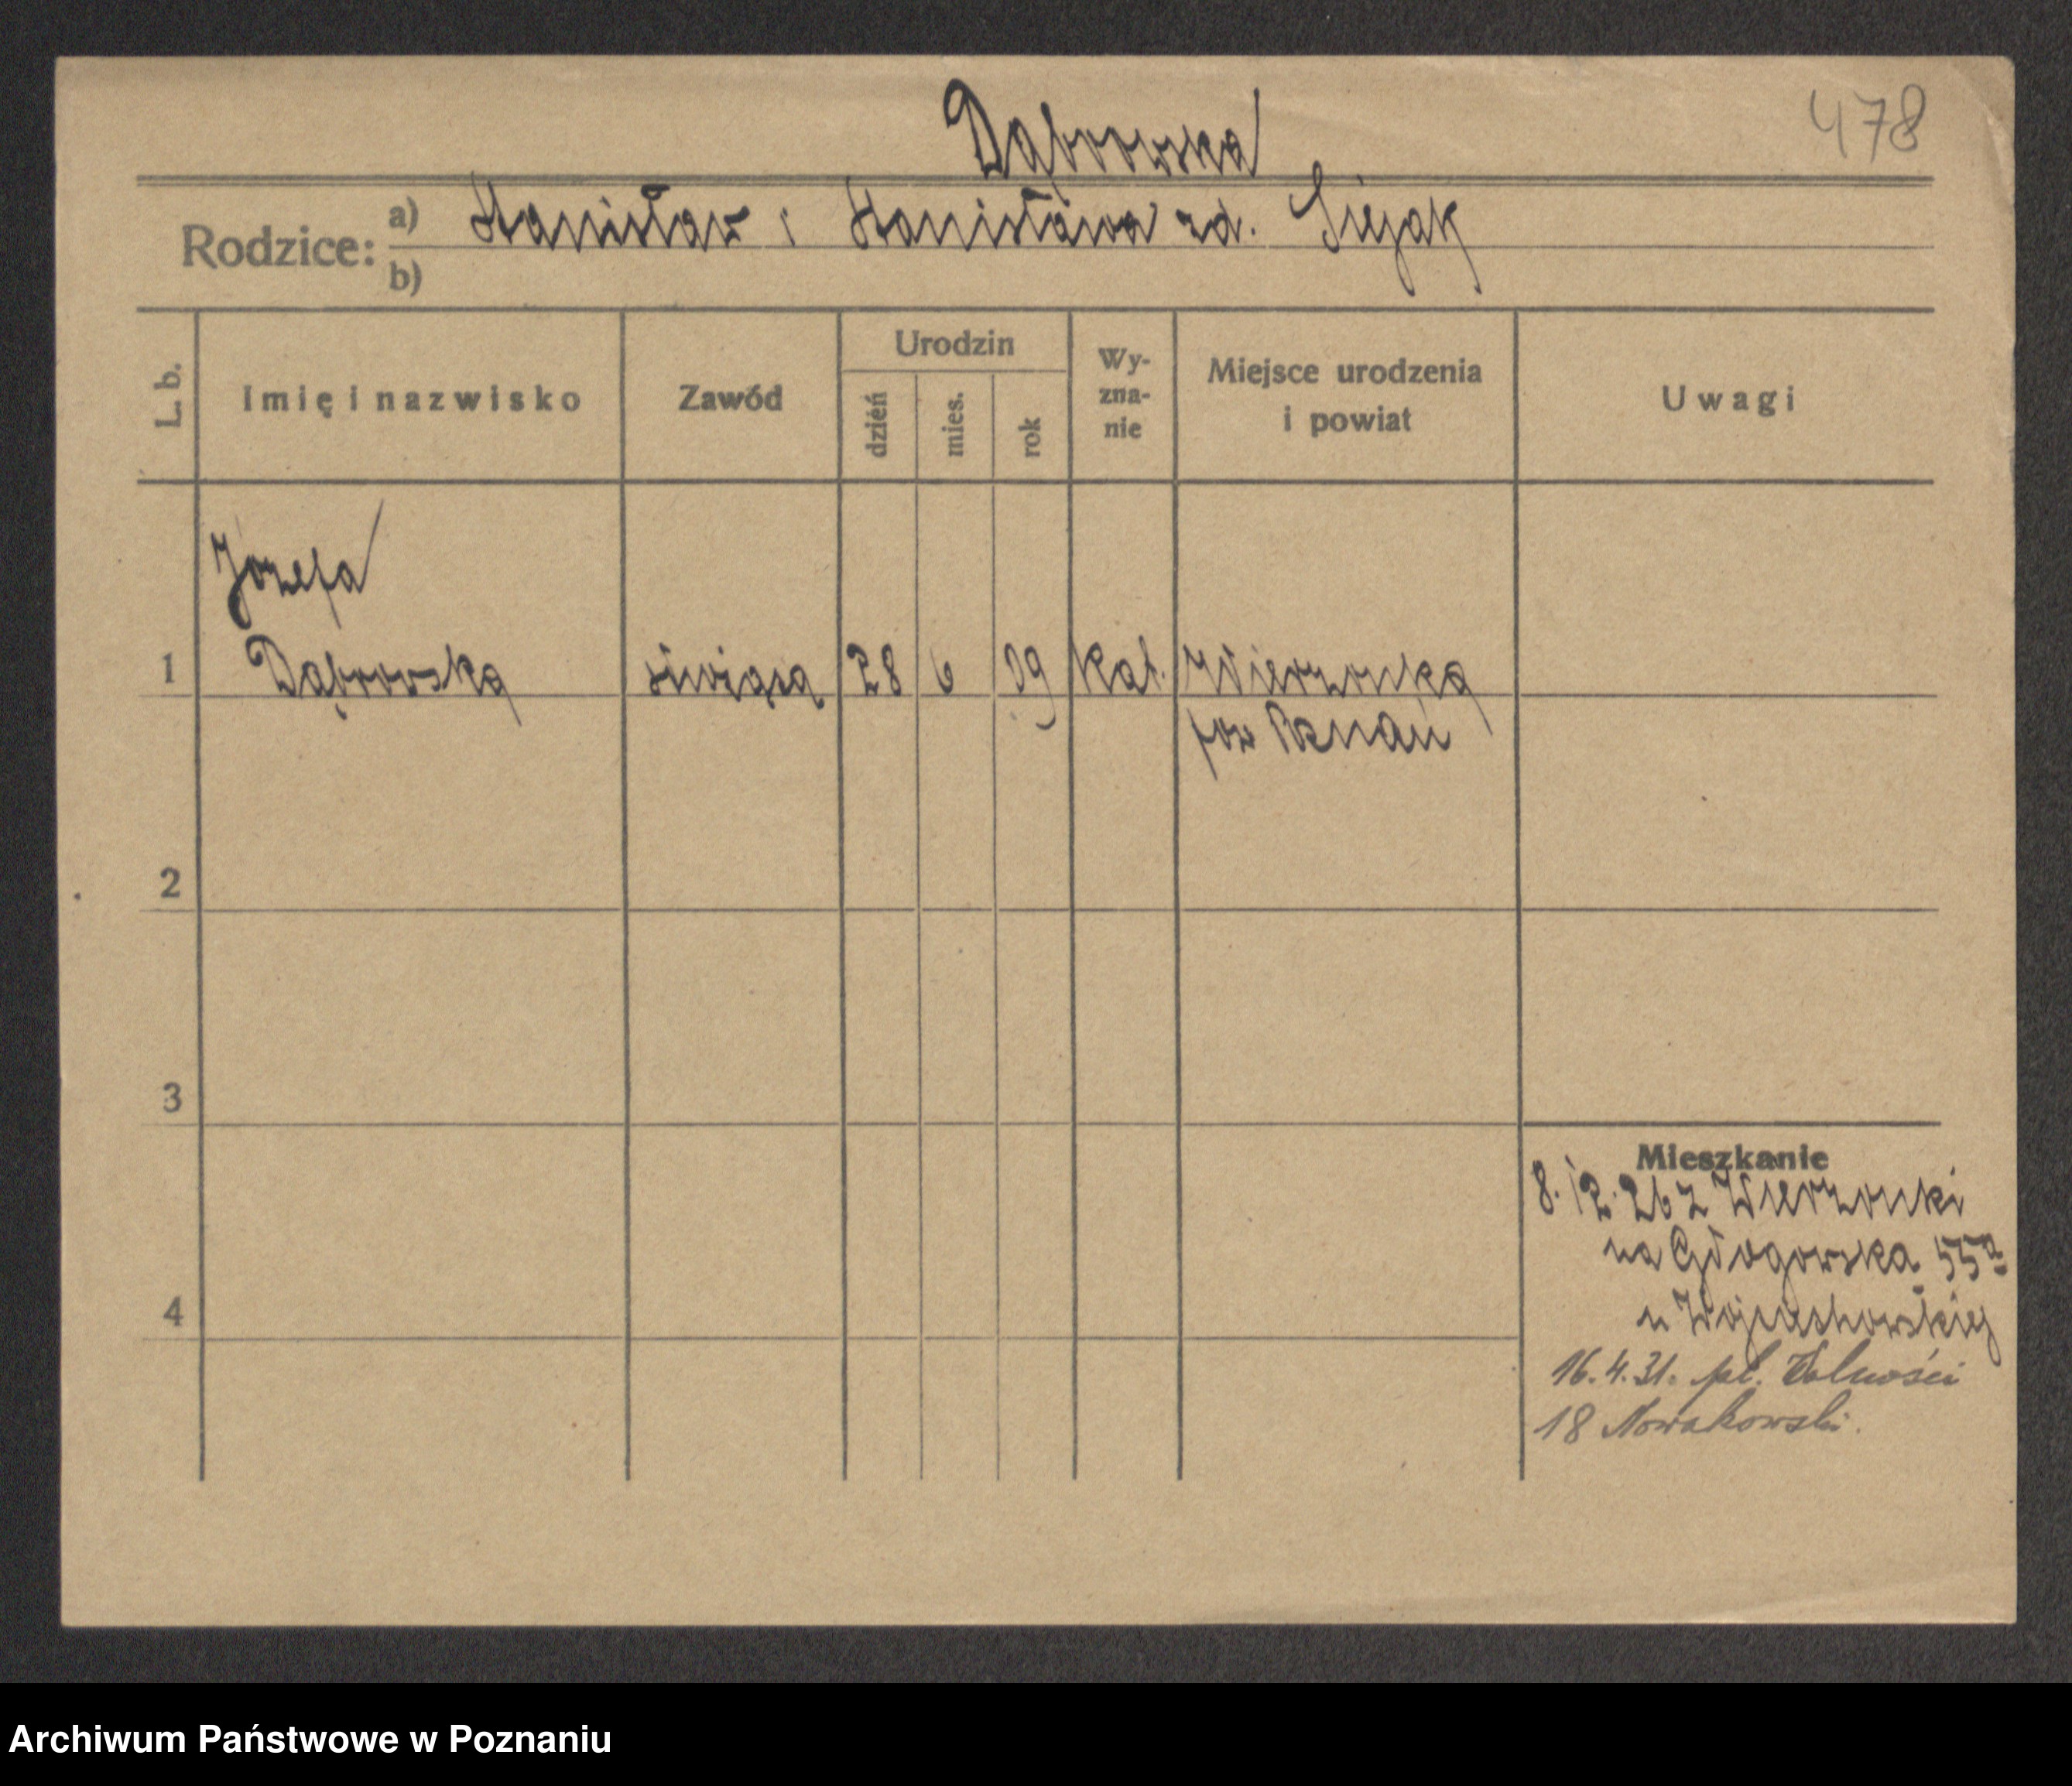 Dąbrowska
478
Rodzice:
a) Stanisław i Stanisława zd.
b)
L. b.
Imię i nazwisko
Zawód
Urodzin
dzień
mies.
rok
Wy-
zna-
nie
Miejsce urodzenia
i powiat
Uwagi
Józefa
1 Dąbrowska służąca 28 6 09 kat. Wierzonka
pow Poznań
2
3
4
Mieszkanie
8. 12. 26 z Wierzonki
na Głogowska 55a
u
16. 4. 31. pl. Wolności
18 Nowakowski.
Archiwum Państwowe w Poznaniu